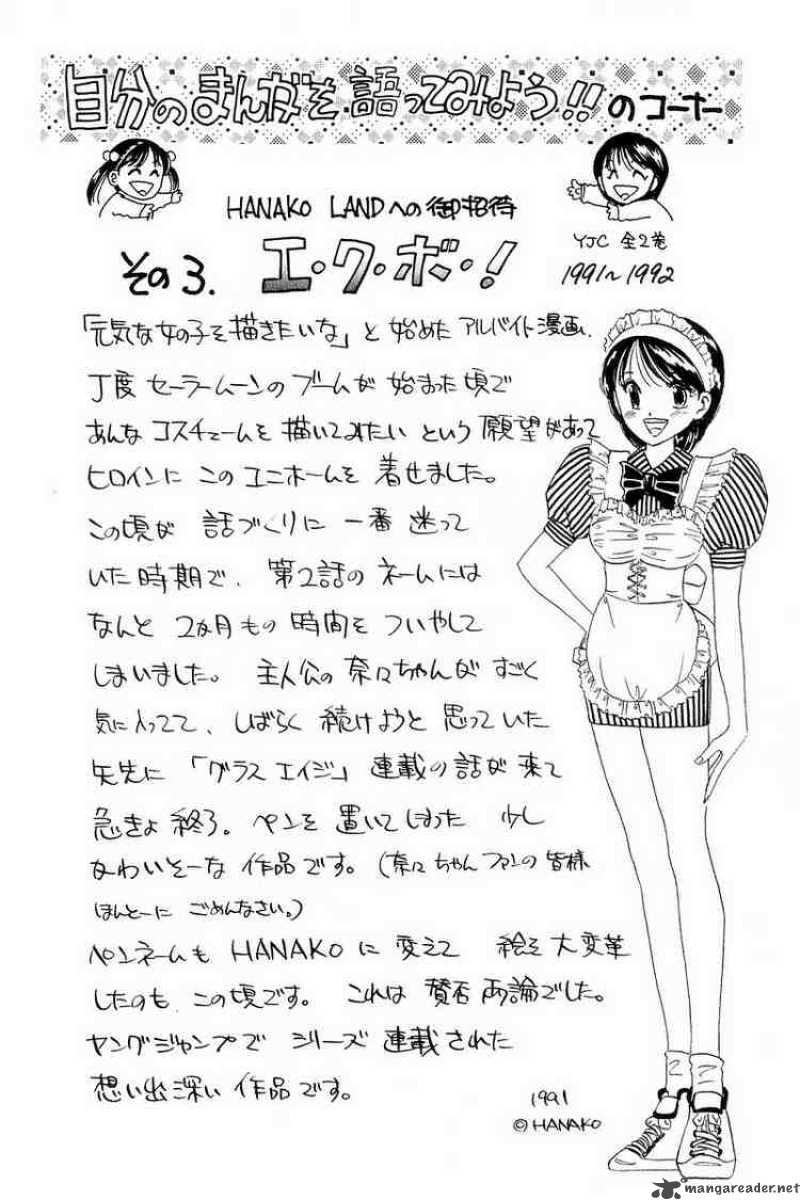 自分のまんがを語ってみよう!!のコーナー
HANAKO LANDへの御招待
その3. エ・ク・ボ・!
YJC 全2巻
1991〜1992
「元気な女の子を描きたいな」と始めたアルバイト漫画、
丁度セーラームーンのブームが始まった頃で
あんなコスチュームを描いてみたいという願望があって
ヒロインにこのユニホームを着せました。
この頃が話づくりに一番迷って
いた時期で、第2話のネームには
なんと2ヵ月もの時間をついやして
しまいました。主人公の奈々ちゃんがすごく
気に入ってて、しばらく続けようと思っていた
矢先に「グラスエイジ」連載の話が来て
急きょ終了。ペンを置いてしまった少し
かわいそーな作品です。(奈々ちゃんファンの皆様
ほんとーにごめんなさい。)
ペンネームもHANAKOに変えて絵を大変革
したのもこの頃です。これは賛否両論でした。
ヤングジャンプでシリーズ連載された
想い出深い作品です。
1991
©HANAKO
mangareader.net